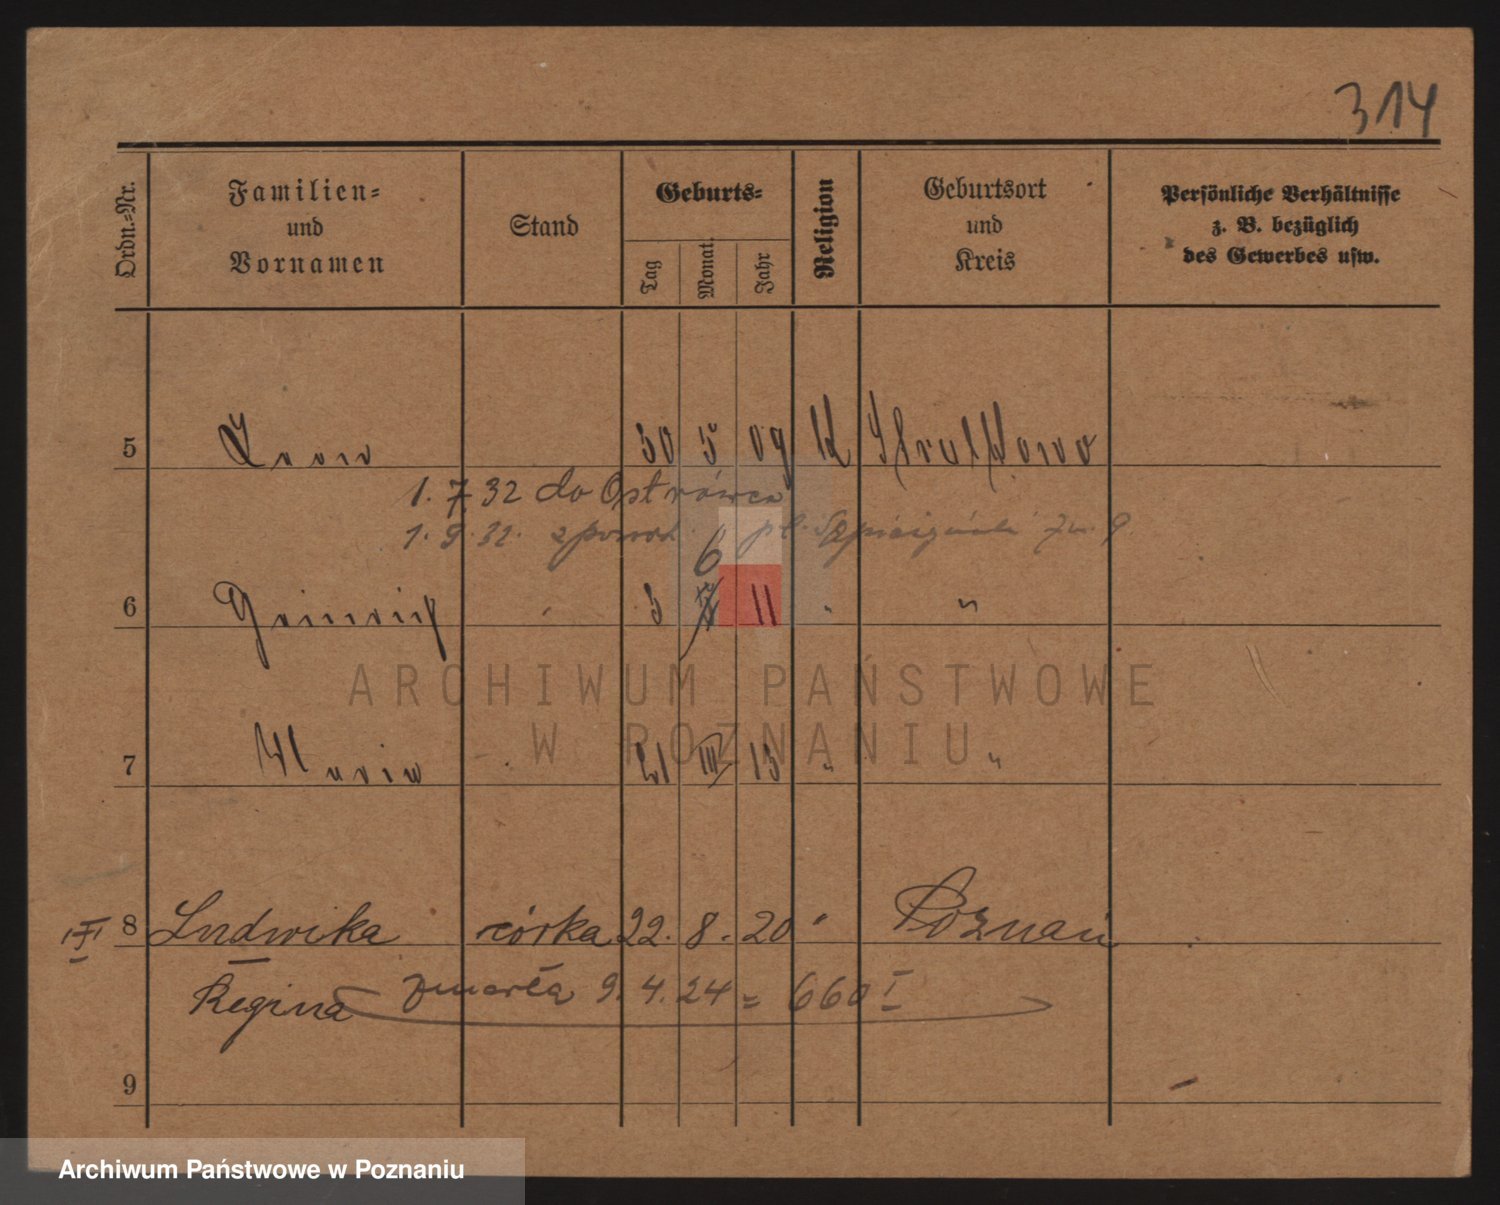 314
Ordn.=Nr.
Familien=
und
Vornamen
Stand
Geburts=
Tag
Monat.
Jahr
Religion
Geburtsort
und
Kreis
Persönliche Verhältnisse
z. B. bezüglich
des Gewerbes usw.
5 Leon 30 5 09 K
1. 7. 32 do Ostrówca
1. 9. 32.
6
6 Heinrich 3 11 " "
ARCHIWUM PAŃSTWOWE
W POZNANIU
7 Maria 21 III 13 " "
8 Ludwika córka 22. 8. 20 " Poznań
Regina zmarła 9. 4. 24 = 660 I
9
Archiwum Państwowe w Poznaniu